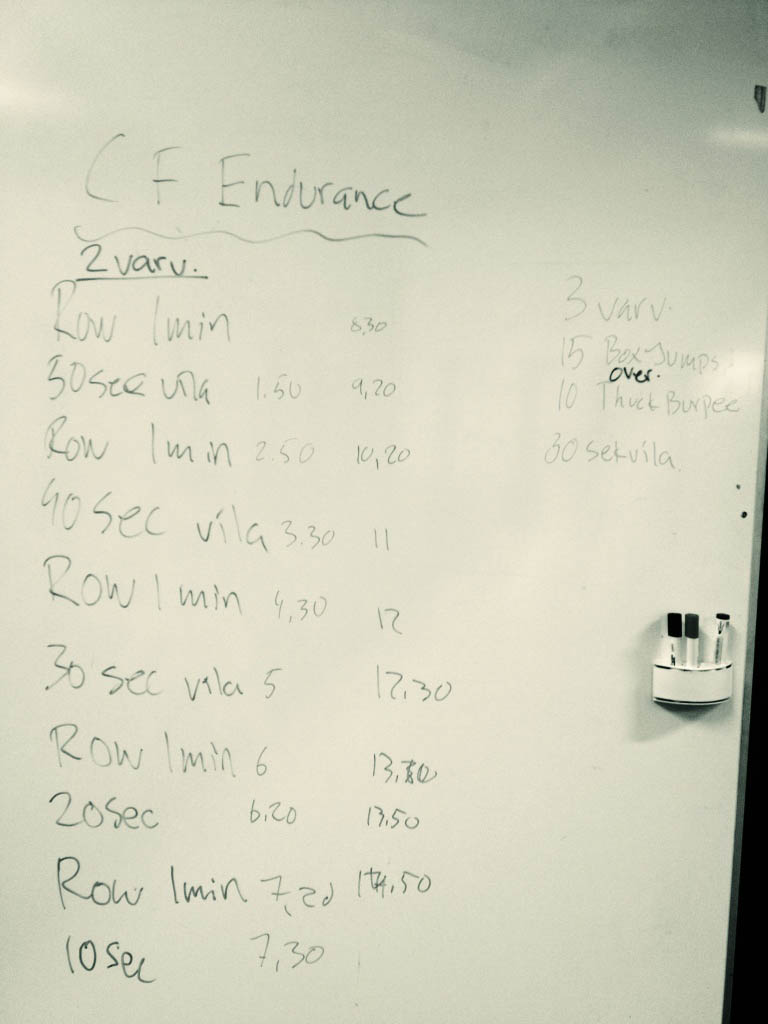 CF Endurance
2 varv.
Row 1min 8,30
50sec vila 1.50 9,20
Row 1min 2.50 10,20
40sec vila 3.30 11
Row 1min 4,30 12
30sec vila 5 12,30
Row 1min 6 13,30
20sec 6,20 13,50
Row 1min 7,20 14,50
10sec 7,30
3 varv.
15 Box Jumps
over.
10 Thuck Burpee
30 sek vila.